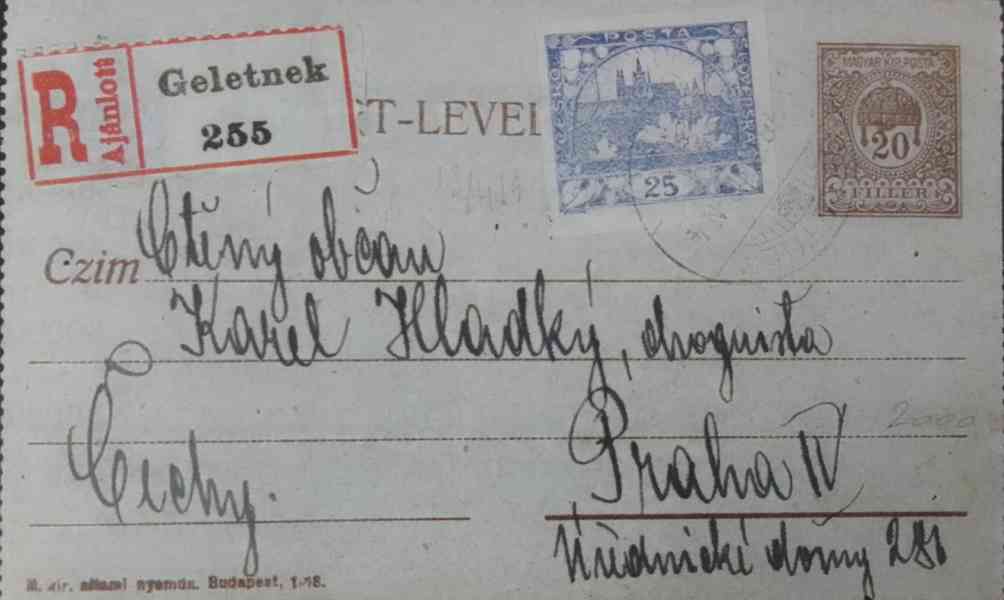 R Ajánlott
Geletnek
255
T-LEVEL
POŠTA
ČESKO-SLOVENSKÁ
25
MAGYAR KIR. POSTA
20
FILLÉR
Czim
Ctěný občan
Karel Hladký, droguista
2000
Praha IV
Čechy.
Úřednické domy 281
M. kir. állami nyomda. Budapest, 1918.